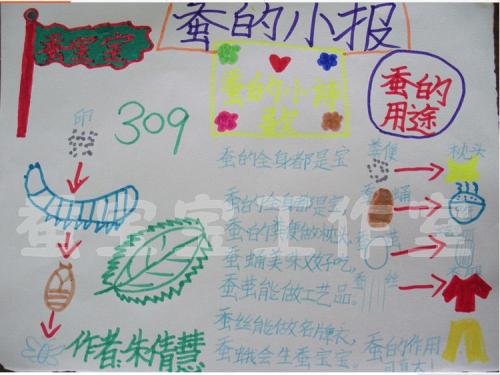 蚕的小报
蚕宝宝
309
卵
作者:朱倩慧
蚕的小诗歌
蚕的全身都是宝
蚕的全身都是宝
蚕的粪便做枕头
蚕蛹美味又好吃
蚕茧能做工艺品。
蚕丝能做名牌衣,
蚕蛾会生蚕宝宝。
蚕的
用途
粪便
枕头
蛹
茧
丝
蚕的作用
蚕宝宝工作室